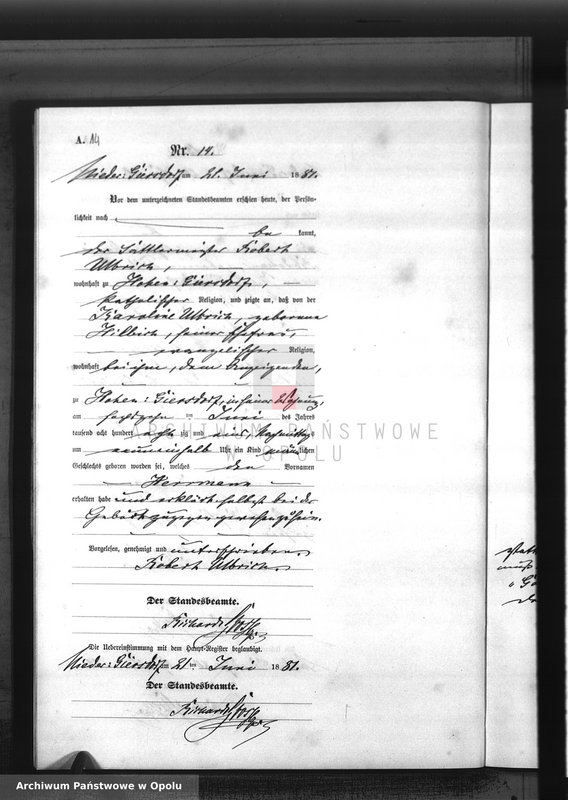 A. 14
Nr. 14.
Nieder: Giersdorf am 21. Juni 1881.
Vor dem unterzeichneten Standesbeamten erschien heute, der Persön-
lichkeit nach
be kannt,
der Sattlermeister Robert
Ulbrich,
wohnhaft zu Hohen: Giersdorf,
katholischer Religion, und zeigte an, daß von der
Karoline Ulbrich, geborene
seiner Ehefrau,
evangelischer Religion,
wohnhaft bei ihm, dem Anzeigenden,
zu Hohen: Giersdorf, in seiner Wohnung,
am sechszehn ten Juni des Jahres
tausend acht hundert achtzig und eins, Nachmittags
um neuneinhalb Uhr ein Kind männlichen
Geschlechts geboren worden sei, welches den Vornamen
Herrmann
erhalten habe und erklärt selbst bei der
Geburt zugegen gewesen zu sein.
Vorgelesen, genehmigt und unterschrieben.
Robert Ulbrich.
Der Standesbeamte.
Richard
Die Uebereinstimmung mit dem Haupt-Register beglaubigt.
Nieder: Giersdorf am 21. ten Juni 1881.
Der Standesbeamte.
Richard
ARCHIWUM PAŃSTWOWE
W OPOLU
Archiwum Państwowe w Opolu